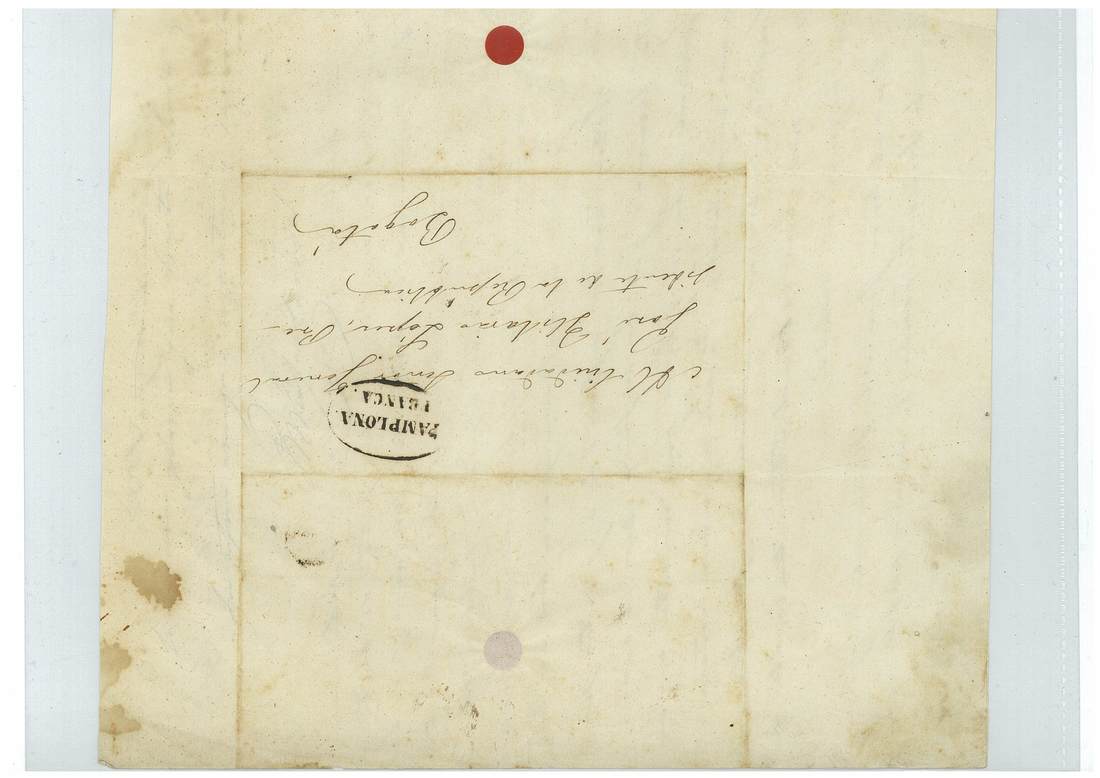 PAMPLONA
FRANCA.
Al Ciudadano Señor General
José Hilario López, Pre-
sidente de la República
Bogotá